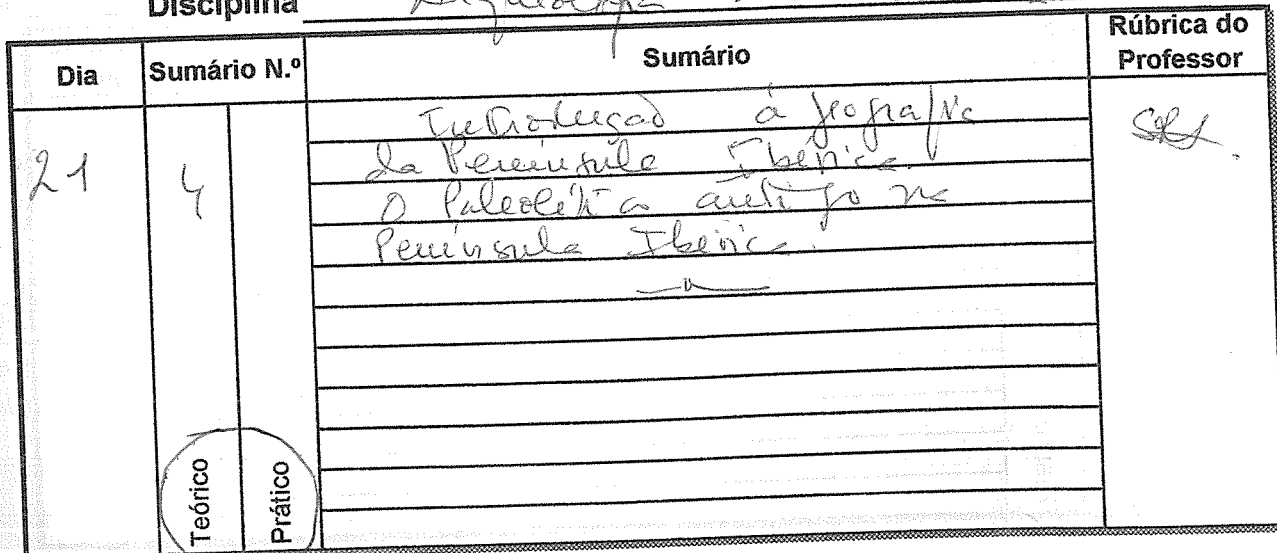 Disciplina Arqueologia
Dia Sumário N.º Sumário Rúbrica do Professor
21 4 Introdução à geografia
da Península Ibérica.
O Paleolítico antigo na
Península Ibérica.
Teórico Prático